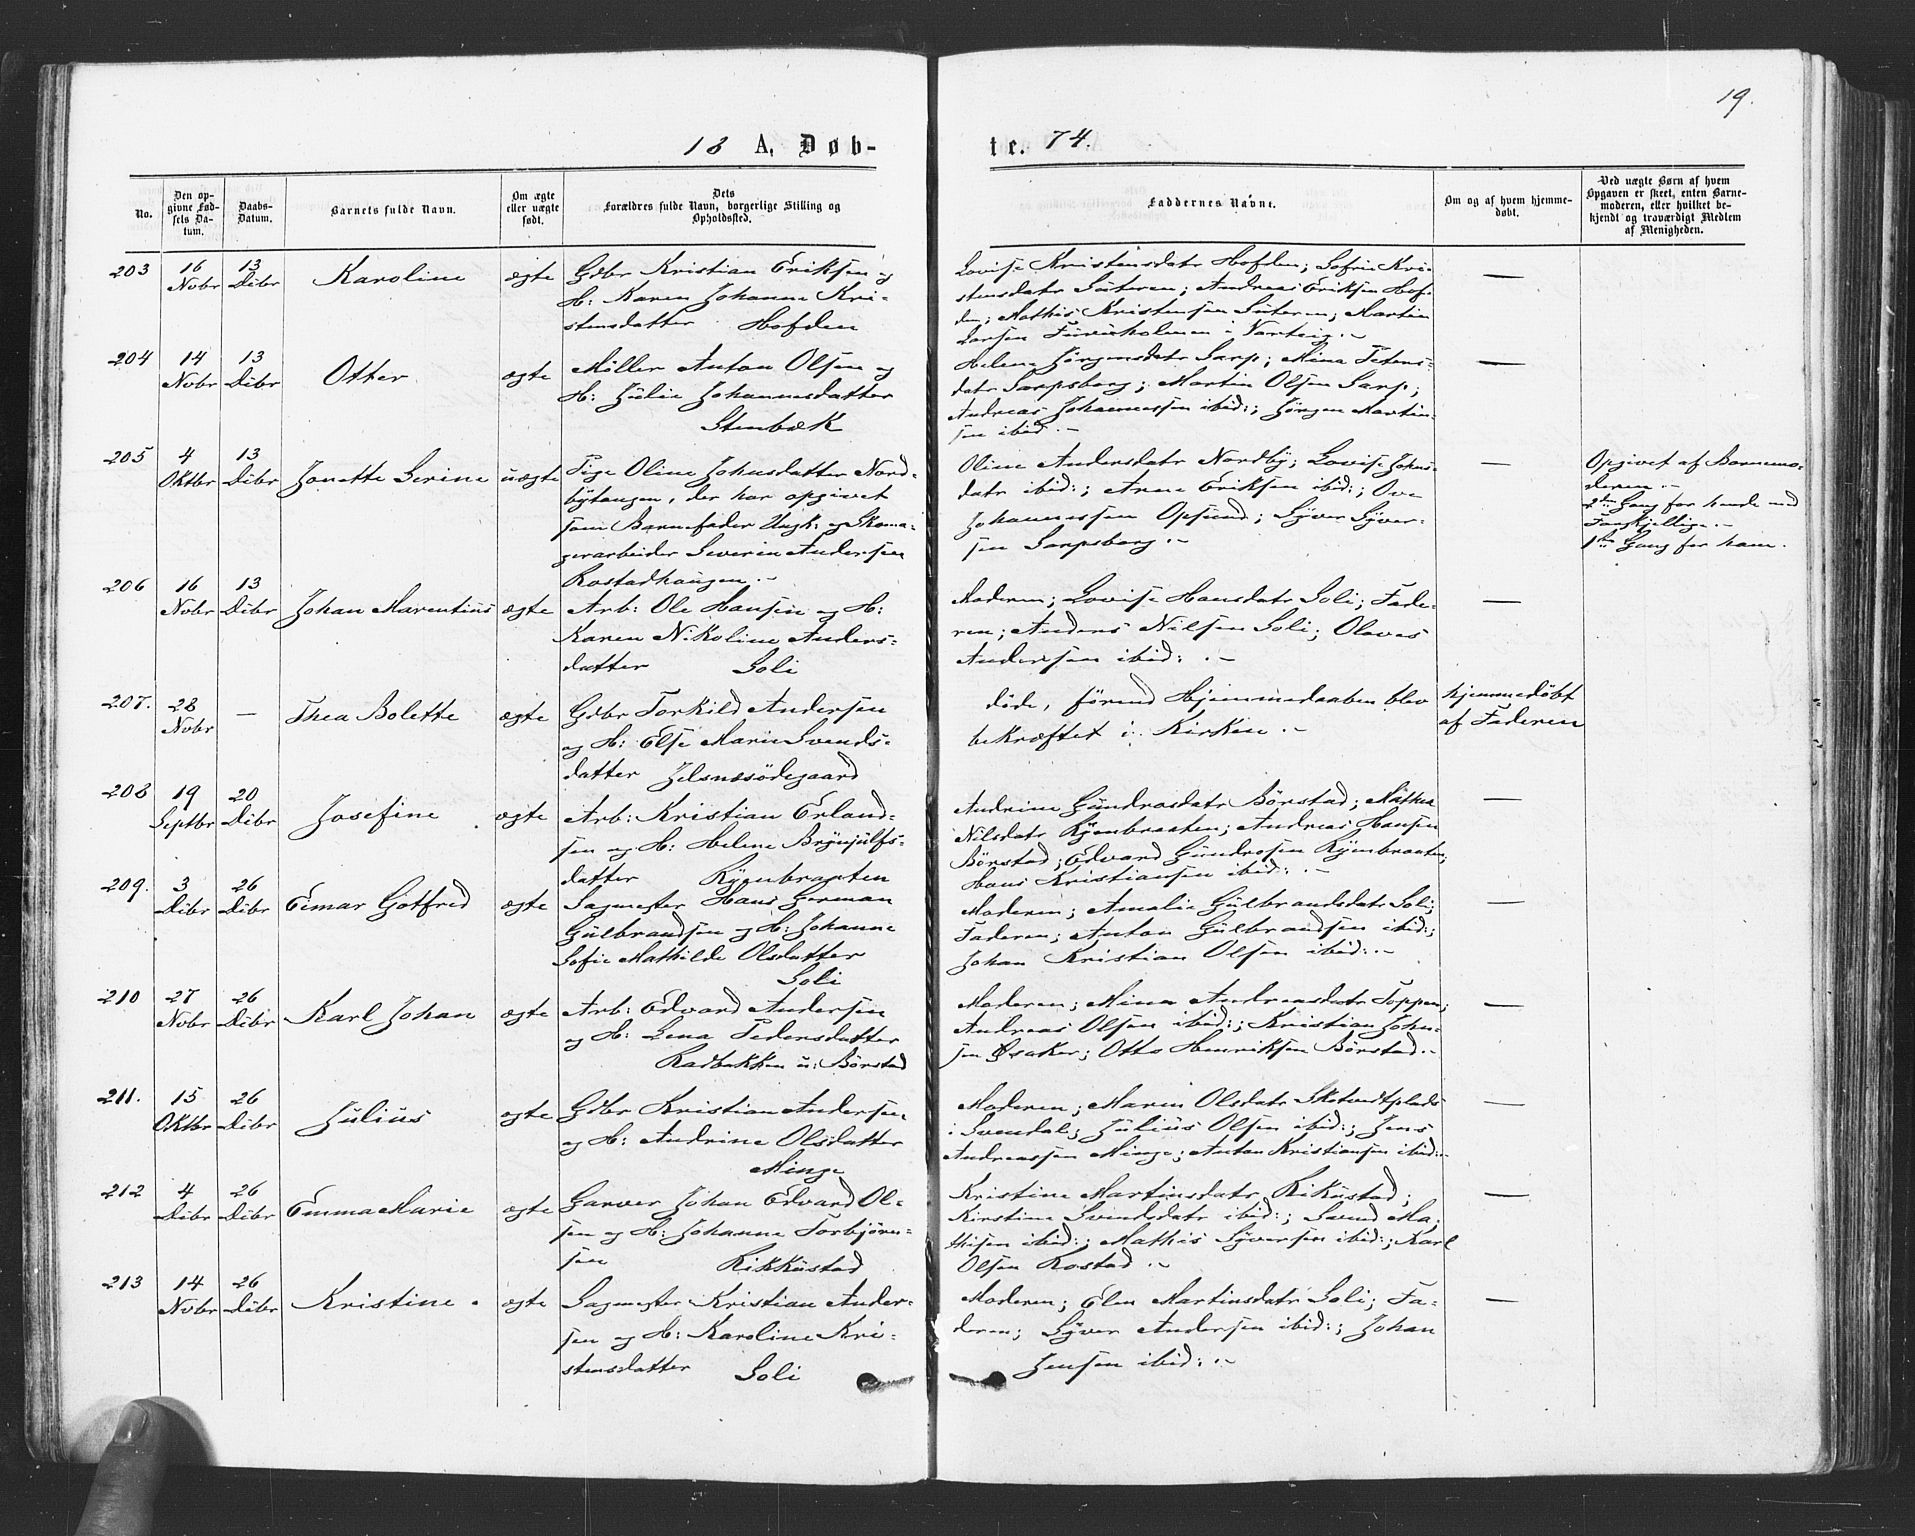 19.
18 A. Døb-
te. 74.
No.
Den op-
givne Fød-
sels Da-
tum.
Daabs-
Datum.
Barnets fulde Navn.
Om ægte
eller uægte
født.
Dets
Forældres fulde Navn, borgerlige Stilling og
Opholdssted.
Faddernes Navne.
Om og af hvem hjemme-
døbt.
Ved uægte Børn af hvem
Opgaven er skeet, enten Barne-
moderen, eller hvilket be-
kjendt og troværdigt Medlem
af Menigheden.
203
16
Nvbr
13
Dcbr
Karoline
ægte
Gdbr Kristian Eriksen og
H: Karen Johanne Kri-
stensdatter Hofden
Lovise Kristensdatr Hofden; Sofie Kri-
stensdatr Suteren; Andreas Eriksen Hof-
den; Mathis Kristensen Suteren; Martin
Larsen Furuholmen i Varteig.-
—
204
14
Nvbr
13
Dcbr
Otter
ægte
Møller Anton Olsen og
H: Julie Johannesdatter
Stenbæk
Helene Jørgensdatr Sarp; Mina Peters-
datr Sarpsborg; Martin Olsen Sarp;
Andreas Johannessen ibid:; Jørgen Martin-
sen ibid.-
—
205
4
Oktbr
13
Dcbr
Jonette Serine
uægte
Pige Oline Johnsdatter Nord-
bytangen, der har opgivet
som Barnefader Ungk: og Skoma-
gerarbeider Severin Andersen
Rostadhaugen.-
Oline Andersdatr Nordby; Lovise Johns-
datr ibid:; Arne Eriksen ibid:; Ove
Johannessen Opsund; Syver Syver-
sen Sarpsborg.-
—
Opgivet af Barnemo-
deren.-
2den Gang for hende med
Forskjellige.-
1ste Gang for ham.
206
16
Nvbr
13
Dcbr
Johan Marentius
ægte
Arb: Ole Hansen og H:
Karen Nikoline Anders-
datter Soli
Moderen; Lovise Hansdatr Soli; Fade-
ren; Anders Nilsen Soli; Olaves
Andersen ibid:.-
—
207.
28
Nvbr
—
Thea Bolette
ægte
Gdbr Torkild Andersen
og H: Else Marie Svends-
datter Jelsnesødegaard
døde, førend Hjemmedaaben blev
bekræftet i Kirken.-
hjemmedøbt
af Faderen
208
19
Septbr
20
Dcbr
Josefine
ægte
Arb: Kristian Erland-
sen og H: Helene Brynjulfs-
datter Kjenbraaten
Andrine Gundrosdatr Børstad; Mathea
Nilsdatr Kjenbraaten; Andreas Hansen
Børstad; Edvard Gundrosen Kjenbraaten;
Hans Kristiansen ibid:.-
—
209.
3
Dcbr
26
Dcbr
Eimar Gotfred
ægte
Sagmester Hans Herman
Gulbrandsen og H: Johanne
Sofie Mathilde Olsdatter
Soli
Moderen; Amalie Gulbrandsdatr Soli;
Faderen; Anton Gulbrandsen ibid:;
Johan Kristian Olsen ibid:.-
—
210
27
Nvbr
26
Dcbr
Karl Johan
ægte
Arb: Edvard Andersen
og H: Lena Pedersdatter
Radbakken u: Børstad
Moderen; Mina Andreasdatr Toppen;
Andreas Olsen ibid:; Kristian John-
sen Øsaker; Otto Henriksen Børstad.-
—
211.
15
Oktbr
26
Dcbr
Julius
ægte
Gdbr Kristian Andersen
og H: Andrine Olsdatter
Minge
Moderen; Maren Olsdatr Skotvedtplads
i Svendal; Julius Olsen ibid:; Jens
Andreassen Minge; Anton Kristiansen ibid:-
—
212
4
Dcbr
26
Dcbr
Emma Marie
ægte
Garver Johan Edvard Ol-
sen og H: Johanne Torbjørn-
sen Rikkustad
Kristine Martinsdatr Rikustad;
Kirstine Svendsdatr ibid:; Svend Ma-
thisen ibid:; Mathis Syversen ibid:; Karl
Olsen Rostad.-
—
213
14
Nvbr
26
Dcbr
Kristine.
ægte
Sagmester Kristian Ander-
sen og H: Karoline Kri-
stensdatter Soli
Moderen; Elen Martinsdatr Soli; Fa-
deren; Syver Andersen ibid:; Johan
Jensen ibid:.-
—